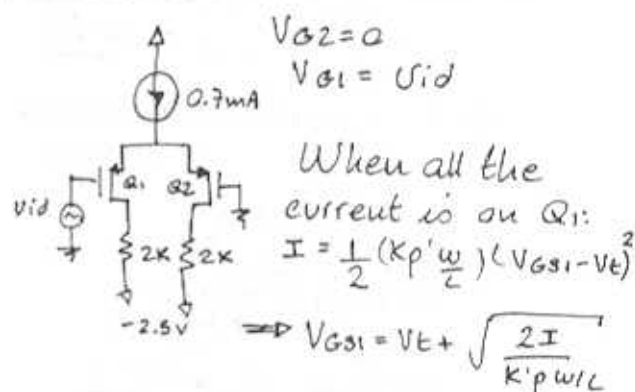 VG2=0
VG1 = Vid
0.7mA
Q1 Q2
Vid
2K 2K
-2.5V
When all the
current is on Q1:
I = 1/2 (Kp' W/L) (VGS1-Vt)²
⇒ VGS1 = Vt + √(2I / K'p W/L)